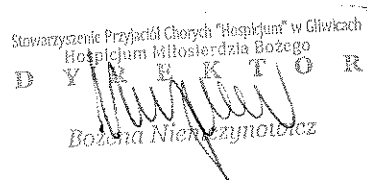 Stowarzyszenie Przyjaciół Chorych "Hospicjum" w Gliwicach
Hospicjum Miłosierdzia Bożego
D Y R E K T O R
Bożena